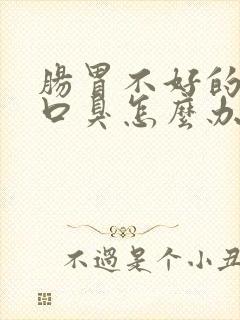 腸胃不好的
口臭怎麼办
不過是个小丑